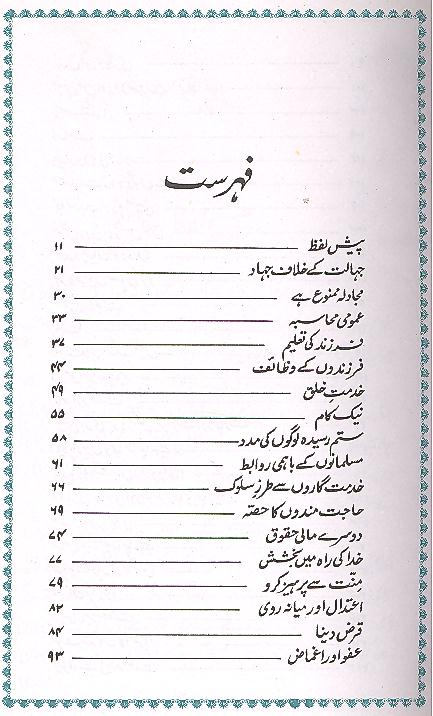 فہرست
پیش لفظ ۱۱
جہالت کے خلاف جہاد ۲۱
مجادلہ ممنوع ہے ۳۰
عمومی محاسبہ ۳۳
فرزند کی تعلیم ۳۷
فرزندوں کے وظائف ۴۴
خدمتِ خلق ۴۹
نیک کام ۵۵
ستم رسیدہ لوگوں کی مدد ۵۸
مسلمانوں کے باہمی روابط ۶۱
خدمت گاروں سے طرزِ سلوک ۶۶
حاجت مندوں کا حصّہ ۶۹
دوسرے مالی حقوق ۷۴
خدا کی راہ میں بخشش ۷۷
مِنّت سے پرہیز کرو ۷۹
اعتدال اور میانہ روی ۸۲
قرض دینا ۸۴
عفو اور اغماض ۹۳